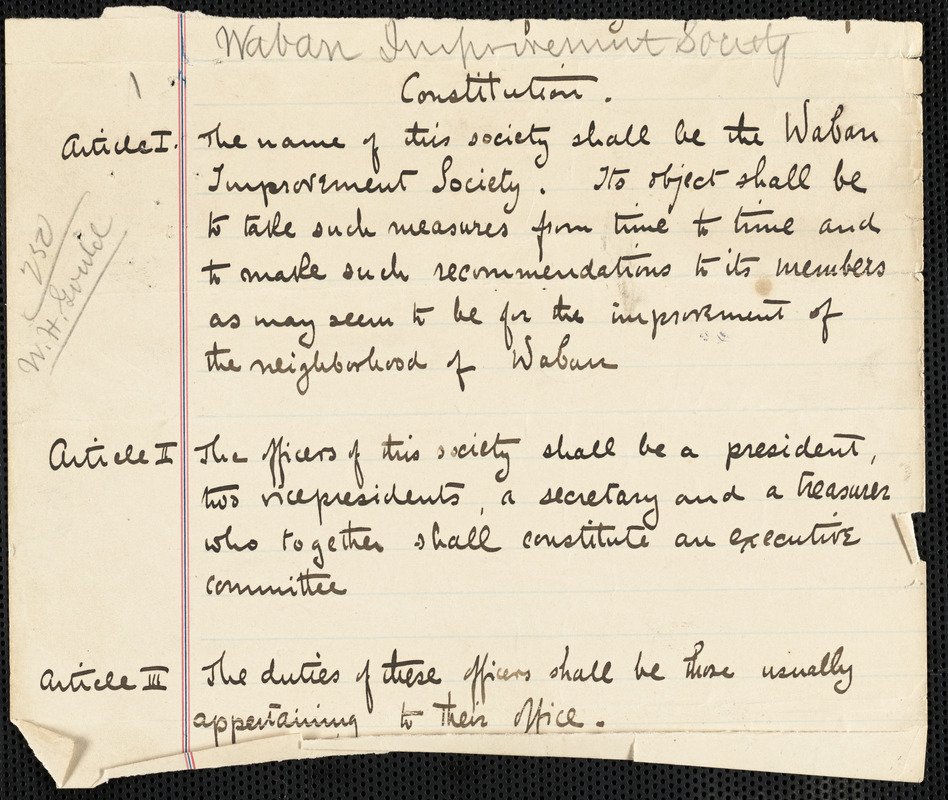 Waban Improvement Society
1
Constitution.
Article I. The name of this society shall be the Waban
Improvement Society. Its object shall be
to take such measures from time to time and
to make such recommendations to its members
as may seem to be for the improvement of
the neighborhood of Waban
250
W. H. Gould
Article II The officers of this society shall be a president,
two vicepresidents, a secretary and a treasurer
who together shall constitute an executive
committee
Article III The duties of these officers shall be those usually
appertaining to their office.